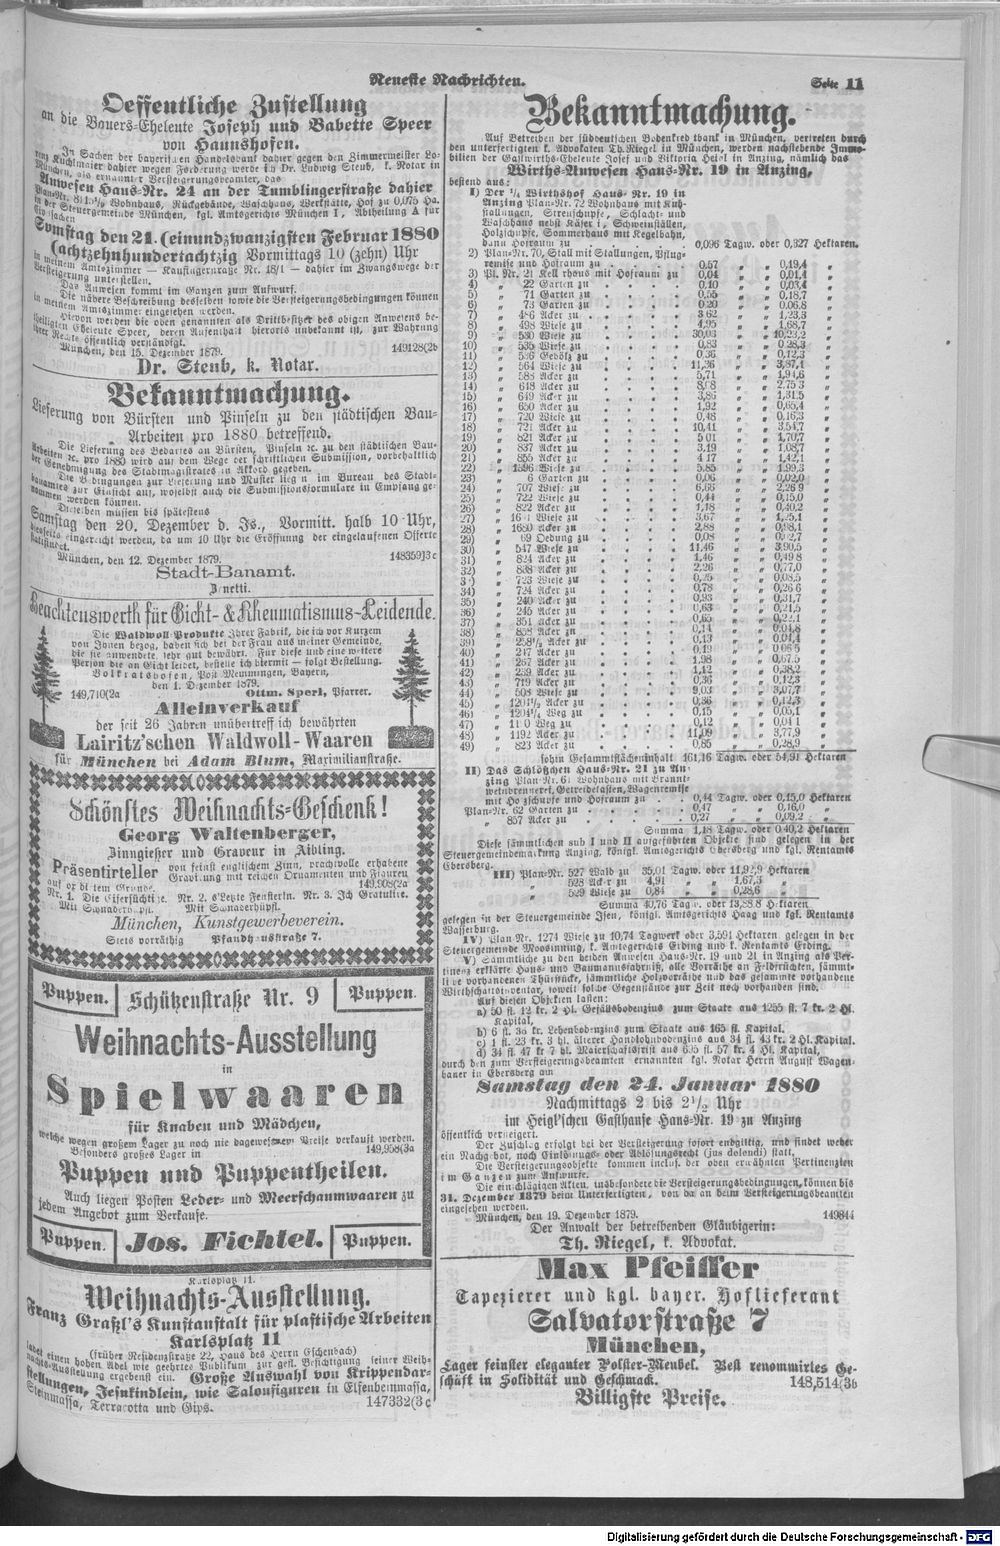 Neueste Nachrichten.
Seite 11
Oeffentliche Zustellung
an die Bauers-Eheleute Joseph und Babette Speer
von Haunshofen.
In Sachen der bayerischen Handelsbank dahier gegen den Zimmermeister Lo-
renz Kuchlmaier dahier wegen Forderung werde ich Dr. Ludwig Steub, k. Notar in
München, als ernannter Versteigerungsbeamter, das
Anwesen Haus-Nr. 24 an der Tumblingerstraße dahier
Wohnhaus, Rückgebäude, Waschhaus, Werkstätte, Hof zu 0,075 Ha.
in der Steuergemeinde München, kgl. Amtsgerichts München I, Abtheilung A für
Civilsachen
Samstag den 21. (einundzwanzigsten Februar 1880
(achtzehnhundertachtzig Vormittags 10 (zehn) Uhr
in meinem Amtszimmer — Kaufingerstraße Nr. 18/1 — dahier im Zwangswege der
Versteigerung unterstellen.
Das Anwesen kommt im Ganzen zum Aufwurf.
Die nähere Beschreibung desselben sowie die Versteigerungsbedingungen können
in meinem Amtszimmer eingesehen werden.
Hievon werden die oben genannten als Drittbesitzer des obigen Anwesens be-
theiligten Eheleute Speer, deren Aufenthalt hierorts unbekannt ist, zur Wahrung
ihrer Rechte öffentlich verständigt.
München, den 15. Dezember 1879. 149128(2b
Dr. Steub, k. Notar.
Bekanntmachung.
Lieferung von Bürsten und Pinseln zu den städtischen Bau-
Arbeiten pro 1880 betreffend.
Die Lieferung des Bedarfes an Bürsten, Pinseln ꝛc. zu den städtischen Bau-
Arbeiten ꝛc. pro 1880 wird auf dem Wege der schriftlichen Submission, vorbehaltlich
der Genehmigung des Stadtmagistrates in Akkord gegeben.
Die Bedingungen zur Lieferung und Muster liegen im Bureau des Stadt-
bauamtes zur Einsicht auf, woselbst auch die Submissionsformulare in Empfang ge-
nommen werden können.
Dieselben müssen bis spätestens
Samstag den 20. Dezember d. Js., Vormitt. halb 10 Uhr,
diesseits eingereicht werden, da um 10 Uhr die Eröffnung der eingelaufenen Offerte
stattfindet.
München, den 12. Dezember 1879. 148359(3c
Stadt-Bauamt.
Zenetti.
Beachtenswerth für Gicht- & Rheumatismus-Leidende.
Die Waldwoll-Produkte Ihrer Fabrik, die ich vor Kurzem
von Ihnen bezog, haben sich bei der Frau aus meiner Gemeinde,
die sie anwendete, sehr gut bewährt. Für diese und eine weitere
Person die an Gicht leidet, bestelle ich hiermit — folgt Bestellung.
Volkratshofen, Post Memmingen, Bayern,
den 1. Dezember 1879.
149,710(2a Ottm. Sperl, Pfarrer.
Alleinverkauf
der seit 26 Jahren unübertrefflich bewährten
Lairitz'schen Waldwoll-Waaren
für München bei Adam Blum, Maximilianstraße.
Schönstes Weihnachts-Geschenk!
Georg Waltenberger,
Zinngießer und Graveur in Aibling.
Präsentirteller von feinst englischem Zinn, prachtvolle erhabene
Gravirung mit reichen Ornamenten und Figuren
auf oxidirtem Grunde. 149,908(2a
Nr. 1. Die Eifersüchtige. Nr. 2. s'Letzte Fensterln. Nr. 3. Ich Gratulire.
Mit Schnaderhüpfl. Mit Schnaderhüpfl.
München, Kunstgewerbeverein.
Stets vorräthig Pfandhausstraße 7.
Puppen. Schützenstraße Nr. 9 Puppen.
Weihnachts-Ausstellung
in
Spielwaaren
für Knaben und Mädchen,
welche wegen großem Lager zu noch nie dagewesenem Preise verkauft werden.
Besonders großes Lager in 149,958(3a
Puppen und Puppentheilen.
Auch liegen Posten Leder- und Meerschaumwaaren zu
jedem Angebot zum Verkaufe.
Puppen. Jos. Fichtel. Puppen.
Karlsplatz 11.
Weihnachts-Ausstellung.
Franz Graßl's Kunstanstalt für plastische Arbeiten
Karlsplatz 11
(früher Residenzstraße 22, Haus des Herrn Eschenbach)
ladet einen hohen Adel wie geehrtes Publikum zur gefl. Besichtigung seiner Weih-
nachts-Ausstellung ergebenst ein. Große Auswahl von Krippendar-
stellungen, Jesukindlein, wie Salonfiguren in Elfenbeinmassa,
Steinmassa, Terracotta und Gips. 147332(3c
Bekanntmachung.
Auf Betreiben der süddeutschen Bodenkreditbank in München, vertreten durch
den unterfertigten k. Advokaten Th. Riegel in München, werden nachstehende Immo-
bilien der Gastwirths-Eheleute Josef und Viktoria Heigl in Anzing, nämlich das
Wirths-Anwesen Haus-Nr. 19 in Anzing,
bestend aus:
I) Der 1/4 Wirthshof Haus-Nr. 19 in
Anzing Plan-Nr. 72 Wohnhaus mit Küh-
stallungen, Streuschupfe, Schlacht- und
Waschhaus nebst Käserei, Schweinställen,
Holzschupfe, Sommerhaus mit Kegelbahn,
dann Hofraum zu 0,096 Tagw. oder 0,327 Hektaren.
2) Plan-Nr. 70, Stall mit Stallungen, Pflug-
remise und Hofraum zu 0,57 " " 0,19,4 "
3) Pl. Nr. 21 Kellerhaus mit Hofraum zu 0,04 " " 0,01,4 "
4) " 22 Garten zu 0,10 " " 0,03,4 "
5) " 71 Garten zu 0,55 " " 0,18,7 "
6) " 73 Garten zu 0,20 " " 0,06,8 "
7) " 486 Acker zu 3,62 " " 1,23,3 "
8) " 498 Wiese zu 4,95 " " 1,68,7 "
9) " 530 Wiese zu 30,03 " " 10,23,2 "
10) " 535 Wiese zu 0,83 " " 0,28,3 "
11) " 536 Gehölz zu 0,36 " " 0,12,3 "
12) " 564 Wiese zu 11,36 " " 3,87,1 "
13) " 588 Acker zu 5,71 " " 1,94,6 "
14) " 618 Acker zu 8,08 " " 2,75,3 "
15) " 649 Acker zu 3,86 " " 1,31,5 "
16) " 650 Acker zu 1,92 " " 0,65,4 "
17) " 720 Wiese zu 0,48 " " 0,16,3 "
18) " 721 Acker zu 10,41 " " 3,54,7 "
19) " 821 Acker zu 5,01 " " 1,70,7 "
20) " 837 Acker zu 3,19 " " 1,08,7 "
21) " 855 Acker zu 4,17 " " 1,42,1 "
22) " 1396 Wiese zu 5,85 " " 1,99,3 "
23) " 6 Garten zu 0,06 " " 0,02,0 "
24) " 707 Wiese zu 6,66 " " 2,26,9 "
25) " 722 Wiese zu 0,44 " " 0,15,0 "
26) " 822 Acker zu 1,18 " " 0,40,2 "
27) " Wiese zu 3,67 " " 1,25,1 "
28) " 1680 Acker zu 2,88 " " 0,98,1 "
29) " 69 Oedung zu 0,08 " " 0,02,7 "
30) " 547 Wiese zu 11,46 " " 3,90,5 "
31) " 824 Acker zu 1,46 " " 0,49,8 "
32) " 838 Acker zu 2,26 " " 0,77,0 "
33) " 723 Wiese zu 0,25 " " 0,08,5 "
34) " 724 Acker zu 0,78 " " 0,26,6 "
35) " 240 Acker zu 0,93 " " 0,31,7 "
36) " 245 Acker zu 0,63 " " 0,21,5 "
37) " 851 Acker zu 0,65 " " 0,22,1 "
38) " 858 Acker zu 0,14 " " 0,04,8 "
39) " 258 1/2 Acker zu 0,13 " " 0,04,4 "
40) " 247 Acker zu 0,19 " " 0,06,5 "
41) " 267 Acker zu 1,98 " " 0,67,5 "
42) " 239 Acker zu 1,12 " " 0,38,2 "
43) " 719 Acker zu 0,36 " " 0,12,3 "
44) " 508 Wiese zu 9,03 " " 3,07,7 "
45) " 1204 1/2 Acker zu 0,36 " " 0,12,3 "
46) " 1204 1/4 Weg zu 0,15 " " 0,05,1 "
47) " Weg zu 0,12 " " 0,04,1 "
48) " 1192 Acker zu 11,09 " " 3,77,9 "
49) " 823 Acker zu 0,85 " " 0,28,9 "
sohin Gesammtflächeninhalt 161,16 Tagw. oder 54,91 Hektaren
II) Das Schlößchen Haus-Nr. 21 zu An-
zing Plan-Nr. 61 Wohnhaus mit Brannt-
weinbrennerei, Getreidekasten, Wagenremise
mit Holzschupfe und Hofraum zu 0,44 Tagw. oder 0,15,0 Hektaren
Plan-Nr. 62 Garten zu 0,47 " " 0,16,0 "
" 857 Acker zu 0,27 " " 0,09,2 "
Summa 1,18 Tagw. oder 0,40,2 Hektaren
Diese sämmtlichen sub I und II aufgeführten Objekte sind gelegen in der
Steuergemeindemarkung Anzing, königl. Amtsgerichts Ebersberg und kgl. Rentamts
Ebersberg.
III) Plan-Nr. 527 Wald zu 35,01 Tagw. oder 11,92,9 Hektaren
" 528 Acker zu 4,91 " " 1,67,3 "
" 529 Wiese zu 0,84 " " 0,28,6 "
Summa 40,76 Tagw. oder 13,88,8 Hektaren
gelegen in der Steuergemeinde Isen, königl. Amtsgerichts Haag und kgl. Rentamts
Wasserburg.
IV) Plan-Nr. 1274 Wiese zu 10,74 Tagwerk oder 3,591 Hektaren, gelegen in der
Steuergemeinde Moosinning, k. Amtsgerichts Erding und k. Rentamts Erding.
V) Sämmtliche zu den beiden Anwesen Haus-Nr. 19 und 21 in Anzing als Per-
tinenz erklärte Haus- und Baumannsfahrniß, alle Vorräthe an Feldfrüchten, sämmt-
liche vorhandenen Thürstücke, sämmtliche Holzvorräthe und das gesammte vorhandene
Wirthschaftsinventar, soweit solche Gegenstände zur Zeit noch vorhanden sind.
Auf diesen Objekten lasten:
a) 50 fl. 12 kr. 2 hl. Gefällsbodenzins zum Staate aus 1255 fl. 7 kr. 2 hl.
Kapital,
b) 6 fl. 36 kr. Lehenbodenzins zum Staate aus 165 fl. Kapital,
c) 1 fl. 23 kr. 3 hl. älterer Handlohnbodenzins aus 34 fl. 43 kr. 2 Hl. Kapital.
d) 34 fl. 47 kr. 7 hl. Maierschaftsfrist aus 695 fl. 57 kr. 4 Hl. Kapital,
durch den zum Versteigerungsbeamten ernannten kgl. Notar Herrn August Wagen-
bauer in Ebersberg am
Samstag den 24. Januar 1880
Nachmittags 2 bis 2 1/2 Uhr
im Heigl'schen Gasthause Haus-Nr. 19 zu Anzing
öffentlich versteigert.
Der Zuschlag erfolgt bei der Versteigerung sofort endgiltig, und findet weder
ein Nachgebot, noch Einlösungs- oder Ablösungsrecht (jus dolendi) statt.
Die Versteigerungsobjekte kommen inclus. der oben erwähnten Pertinenzien
im Ganzen zum Aufwurfe.
Die einschlägigen Akten, insbesondere die Versteigerungsbedingungen, können bis
31. Dezember 1879 beim Unterfertigten, von da an beim Versteigerungsbeamten
eingesehen werden.
München, den 19. Dezember 1879. 149844
Der Anwalt der betreibenden Gläubigerin:
Th. Riegel, k. Advokat.
Max Pfeiffer
Tapezierer und kgl. bayer. Hoflieferant
Salvatorstraße 7
München,
Lager feinster eleganter Polster-Meubel. Best renommirtes Ge-
schäft in Solidität und Geschmack. 148,514(3b
Billigste Preise.
Digitalisierung gefördert durch die Deutsche Forschungsgemeinschaft - DFG